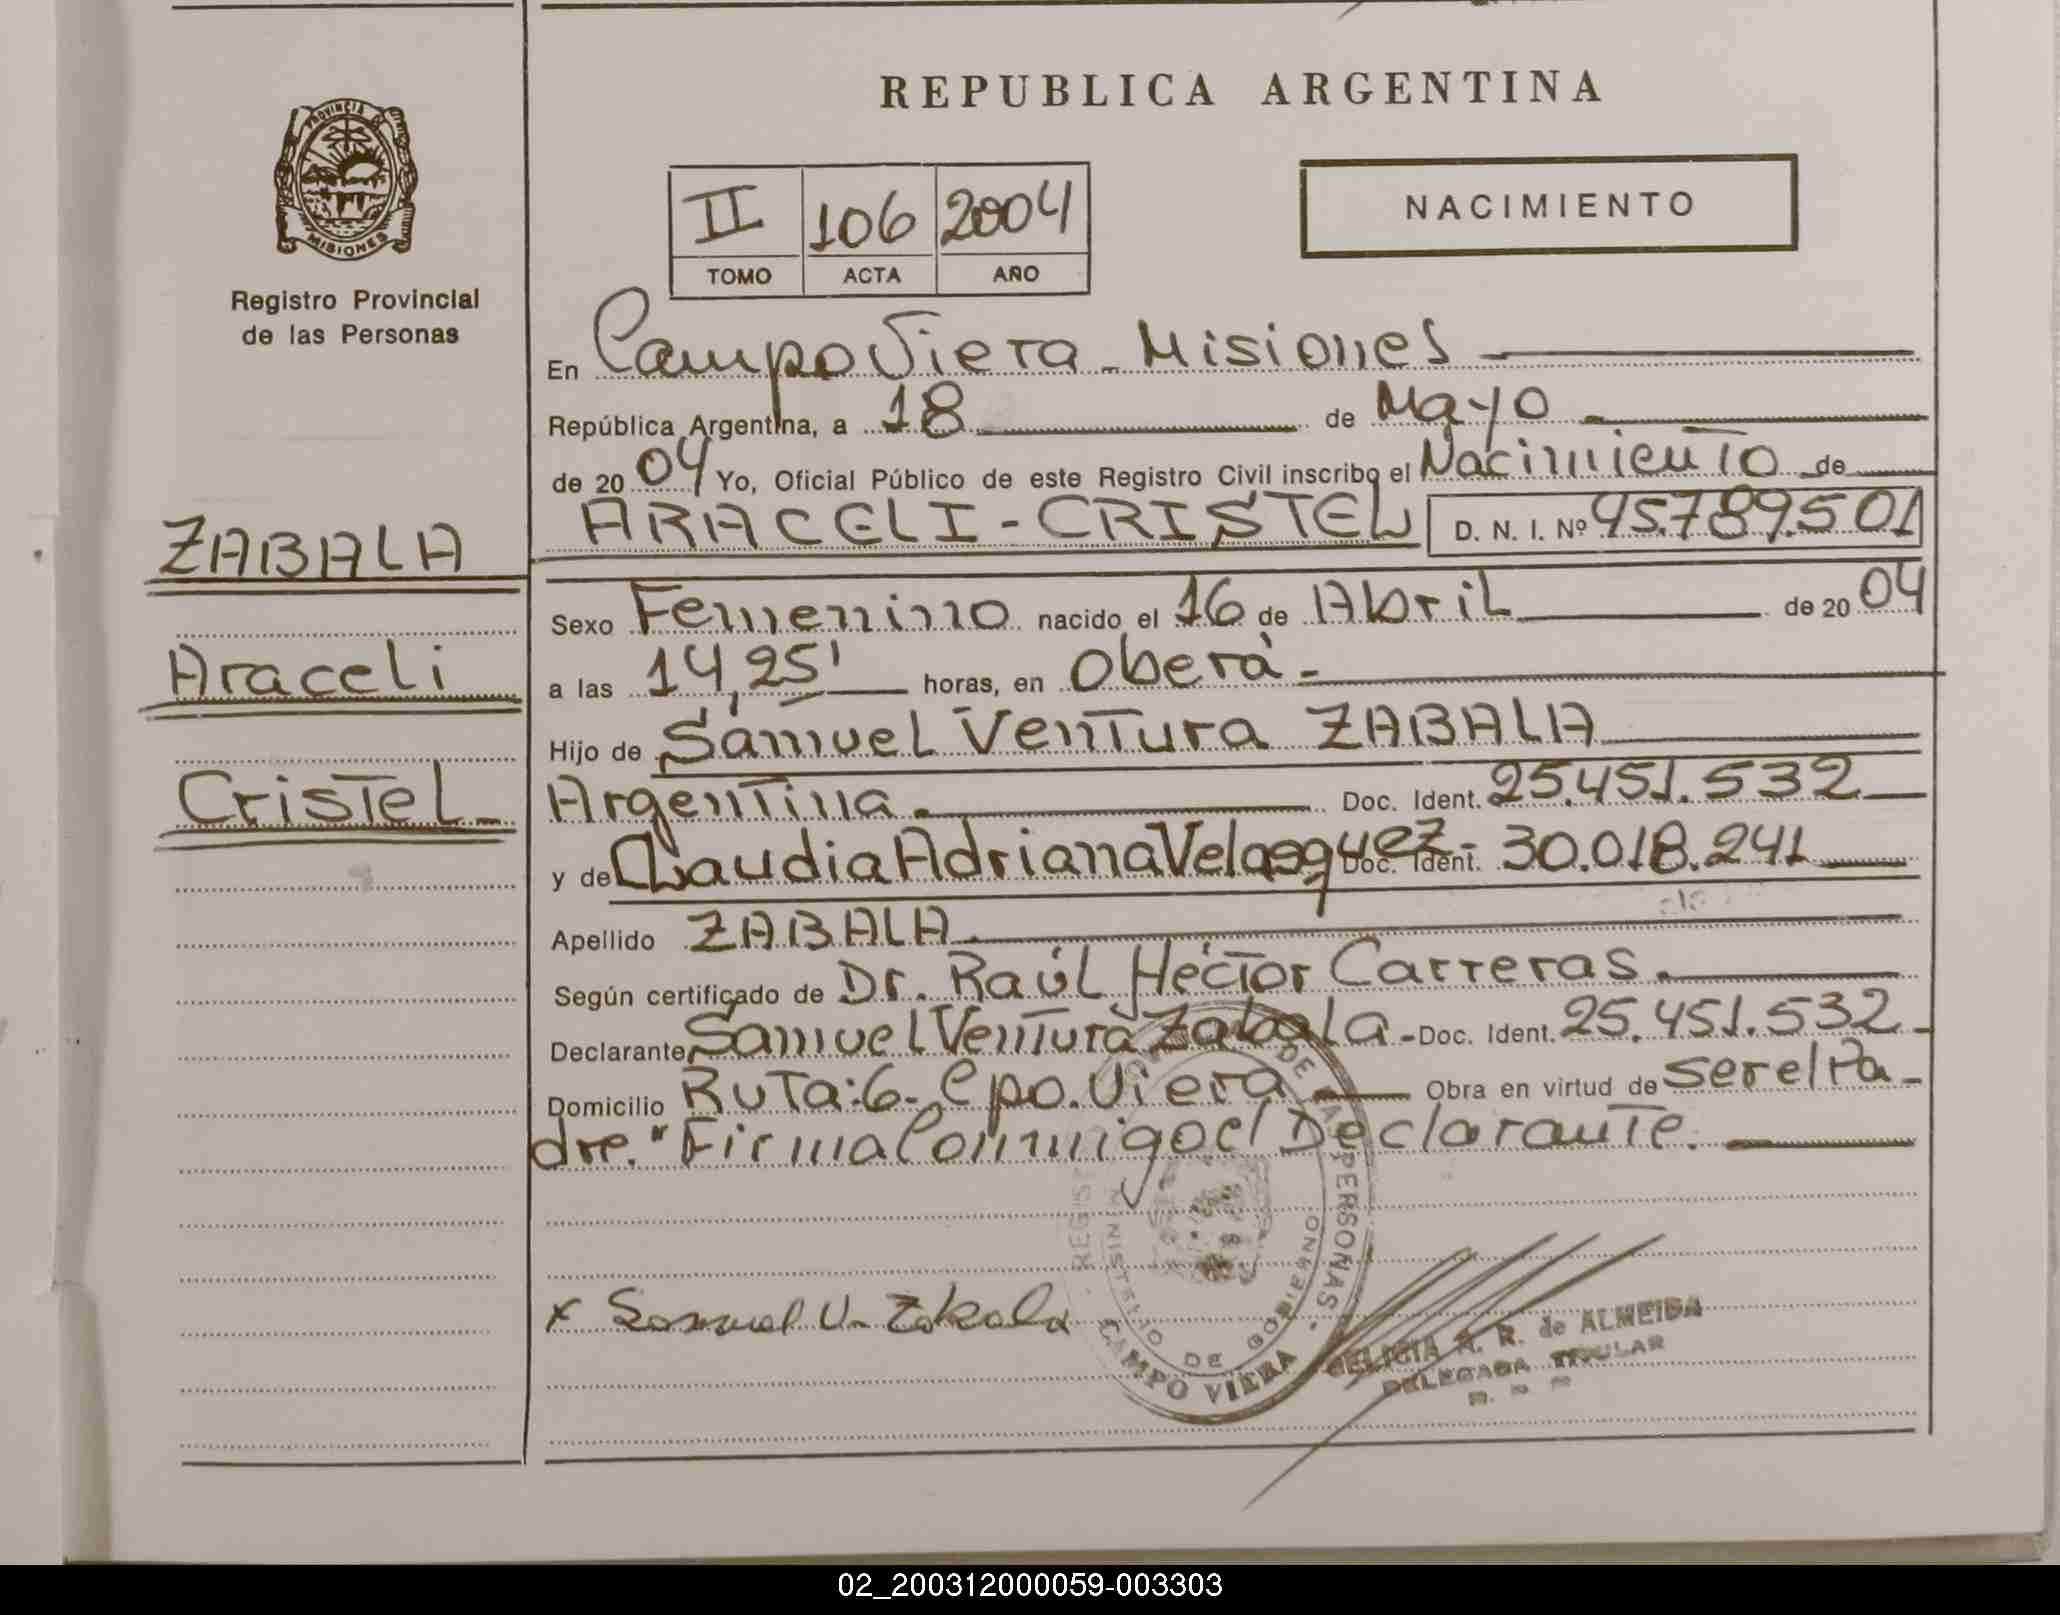 REPUBLICA ARGENTINA
PROVINCIA DE
MISIONES
Registro Provincial
de las Personas
II 106 2004
TOMO ACTA AÑO
NACIMIENTO
En Campo Viera - Misiones
República Argentina, a 18 de Mayo
de 2004 Yo, Oficial Público de este Registro Civil inscribo el Nacimiento de
ARACELI - CRISTEL D. N. I. Nº 45.789.501
ZABALA
Araceli
Cristel
Sexo Femenino nacido el 16 de Abril de 2004
a las 14,25' horas, en Oberá
Hijo de Samuel Ventura ZABALA
Argentina. Doc. Ident. 25.451.532
y de Claudia Adriana Velasquez - Doc. Ident. 30.018.241
Apellido ZABALA
Según certificado de Dr. Raúl Héctor Carreras.
Declarante Samuel Ventura Zabala - Doc. Ident. 25.451.532
Domicilio Ruta: 6 - Cpo. Viera Obra en virtud de ser el Pa-
dre." Firma Conmigo el Declarante.
x Samuel V. Zabala
REGIST DE LAS PERSONAS
MINISTERIO DE GOBIERNO
CAMPO VIERA
R. de ALMEIDA
DELEGADA TITULAR
02_200312000059-003303